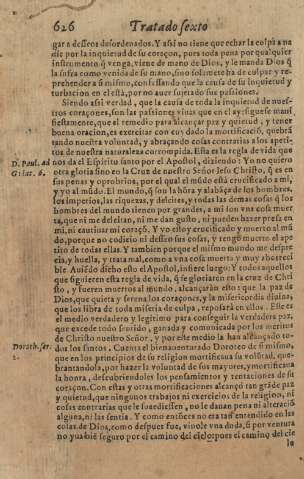 626 Tratado sexto
gar a desseos desordenados. Y assi no tiene que echar la culpa a na
die por la inquietud de su coraçon, pues toda pena por qualquier
instrumento q̃ venga, viene de mano de Dios, y le manda Dios q̃
la sufra como venida de su mano, sino solamẽte ha de culpar y re-
prehender a si mismo, confessando que la causa de su inquietud y
turbacion en el está, por no auer sujetado sus passiones.
Siendo assi verdad, que la causa de toda la inquietud de nues-
tros coraçones, son las passiones viuas que en el ay: siguese mani
fiestamente, que el remedio para alcançar paz y quietud, y tener
buena oracion, es exercitar con cuydado la mortificaciõ, quebrã
tando nuestra voluntad, y abraçando cosas contrarias a los apeti-
tos de nuestra naturaleza corrompida. Esta es la regla de vida que
D. Paul. ad nos da el Espiritu santo por el Apostol, diziendo: Yo no quiero
Galat. 6. otra gloria sino en la Cruz de nuestro Señor Iesu Christo, q̃ es en
sus penas y oprobrios, por el qual el mũdo està crucificado a mi,
y yo al mũdo. El mundo, q̃ son la hõra y alabãça de los hombres,
los imperios, las riquezas, y deleites, y todas las demas cosas q̃ los
hombres del mundo tienen por grandes, a mi son vna cosa muer
ta, que ni me deleitan, ni me dan gusto, ni pueden hazer presa en
mi, ni cautiuar mi coraçõ. Y yo estoy crucificado y muerto al mũ
do, porque no codicio ni desseo sus cosas, y tengo muerto el ape
tito de todas ellas. Y tambien porque el mismo mundo me despre
cia, y huella, y trata mal, como a vna cosa muerta y muy aborreci
ble. Auiẽdo dicho esto el Apostol, infiere luego: Y todos aquellos
que siguieren esta regla de vida, q̃ se gloriaren en la cruz de Chri
sto, y fueren muertos al mundo, alcançaràn esto: que la paz de
Dios, que quieta y serena los coraçones, y la misericordia diuina,
que los libra de toda miseria de culpa, reposarà en ellos. Este es
el medio verdadero y legitimo para conseguir la verdadera paz,
que excede todo sentido, ganada y comunicada por los meritos
de Christo nuestro Señor, y por este medio la han alcançado to-
Doroth. ser. dos los santos. Cuenta el bienauenturado Doroteo de si mismo,
que en los principios de su religion mortificaua su volũtad, que-
brantandola, por hazer la voluntad de sus mayores, y mortificaua
la honra, descubriendoles los pensamientos y tentaciones de su
coraçon. Con estas y otras mortificaciones alcançò tan grãde paz
y quietud, que ningunos trabajos ni exercicios de la religion, ni
cosas contrarias que le sucediessen, no le dauan pena ni alteracion
alguna, ni las sentia. Y como entõces no era tan entendido en las
cosas de Dios, como despues fue, vinole vna duda, si por ventura
no yua bien seguro por el camino del cielo: pues el camino del cie
lo